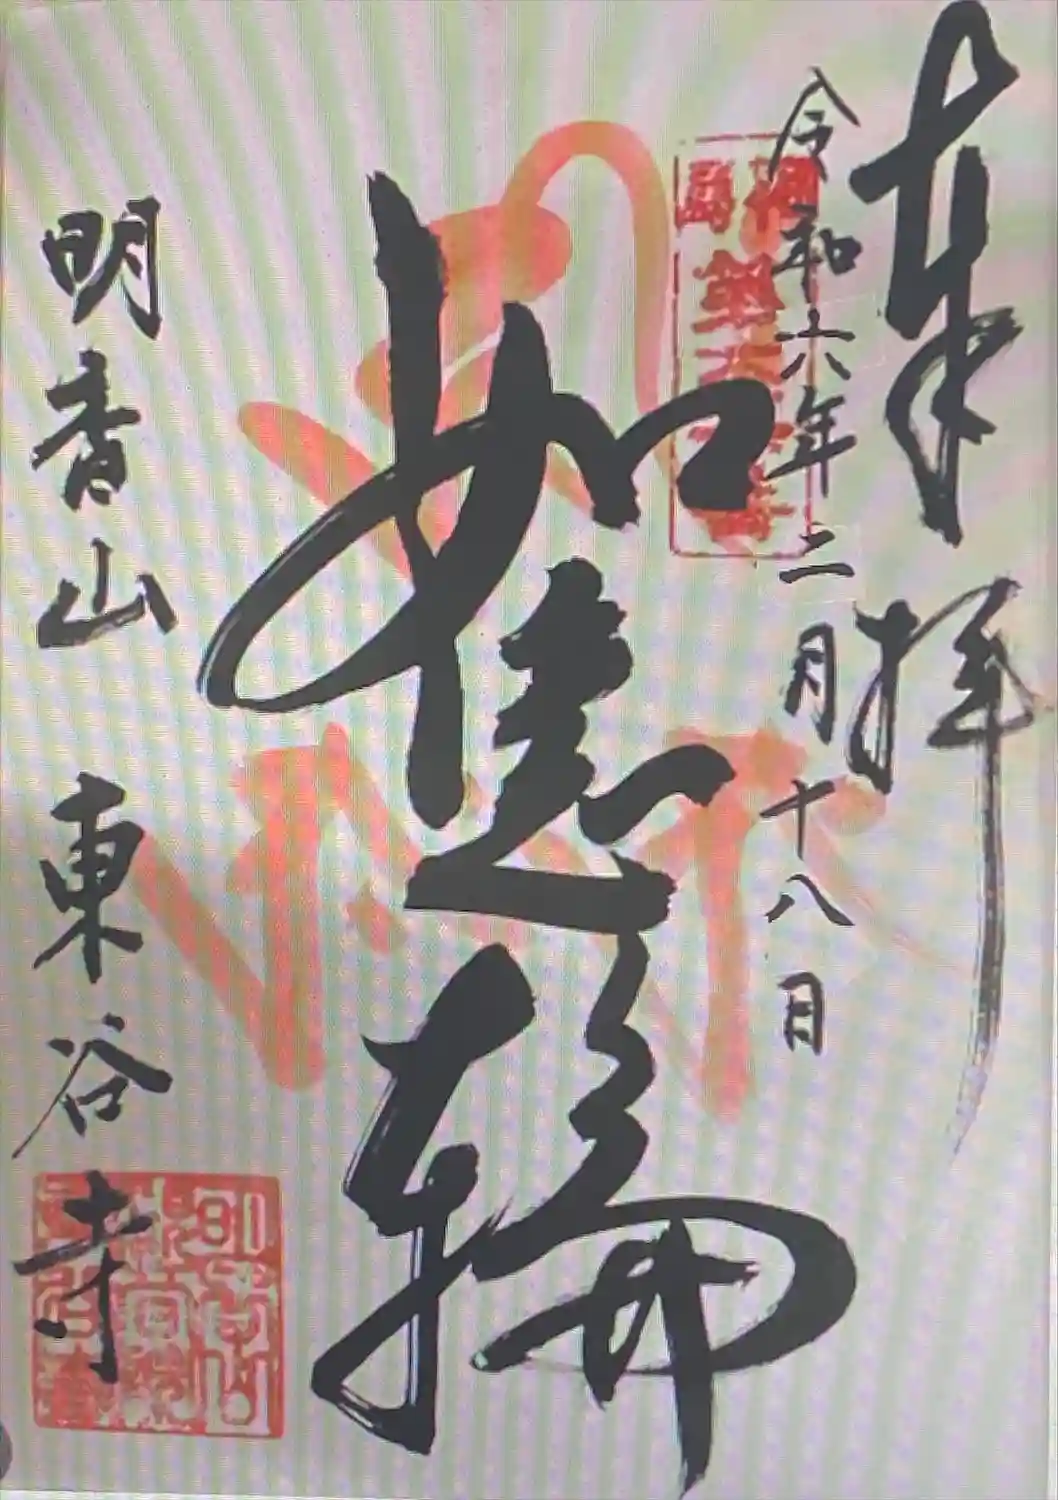 奉拝
令和六年二月十八日
如意輪
明香山 東谷寺